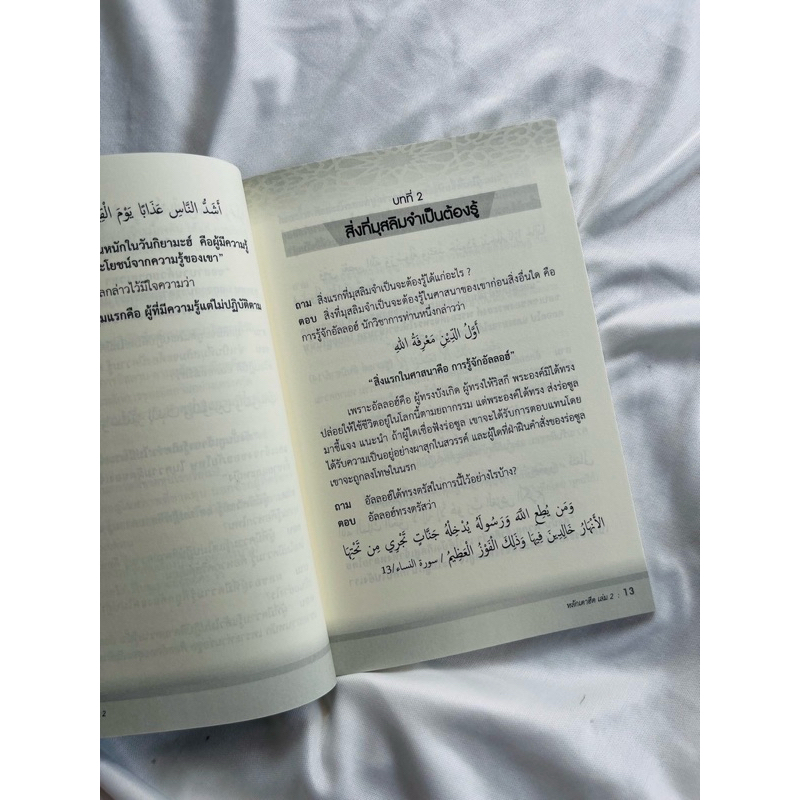 أَشَدُّ النَّاسِ عَذَابًا يَوْمَ
นหนักในวันกิยามะฮ์ คือผู้มีความรู้
ะโยชน์จากความรู้ของเขา"
ลกล่าวไว้มีใจความว่า
มแรกคือ ผู้ที่มีความรู้แต่ไม่ปฏิบัติตาม
2
บทที่ 2
สิ่งที่มุสลิมจำเป็นต้องรู้
ถาม สิ่งแรกที่มุสลิมจำเป็นจะต้องรู้ได้แก่อะไร ?
ตอบ สิ่งที่มุสลิมจำเป็นจะต้องรู้ในศาสนาของเขาก่อนสิ่งอื่นใด คือ
การรู้จักอัลลอฮ์ นักวิชาการท่านหนึ่งกล่าวว่า
أَوَّلُ الدِّيْنِ مَعْرِفَةُ اللهِ
"สิ่งแรกในศาสนาคือ การรู้จักอัลลอฮ์"
เพราะอัลลอฮ์คือ ผู้ทรงบังเกิด ผู้ทรงให้ริสกี พระองค์มิได้ทรง
ปล่อยให้ใช้ชีวิตอยู่ในโลกนี้ตามยถากรรม แต่พระองค์ได้ทรง ส่งร่อซูล
มาชี้แจง แนะนำ ถ้าผู้ใดเชื่อฟังร่อซูล เขาจะได้รับการตอบแทนโดย
ได้รับความเป็นอยู่อย่างผาสุกในสวรรค์ และผู้ใดที่ฝ่าฝืนคำสั่งของร่อซูล
เขาจะถูกลงโทษในนรก
ถาม อัลลอฮ์ได้ทรงตรัสในการนี้ไว้อย่างไรบ้าง?
ตอบ อัลลอฮ์ทรงตรัสว่า
وَمَن يُطِعِ اللَّهَ وَرَسُولَهُ يُدْخِلْهُ جَنَّاتٍ تَجْرِي مِن تَحْتِهَا
الأَنْهَارُ خَالِدِينَ فِيهَا وَذَلِكَ الْفَوْزُ الْعَظِيمُ / سورة النساء/13
หลักเตาฮีด เล่ม 2 : 13